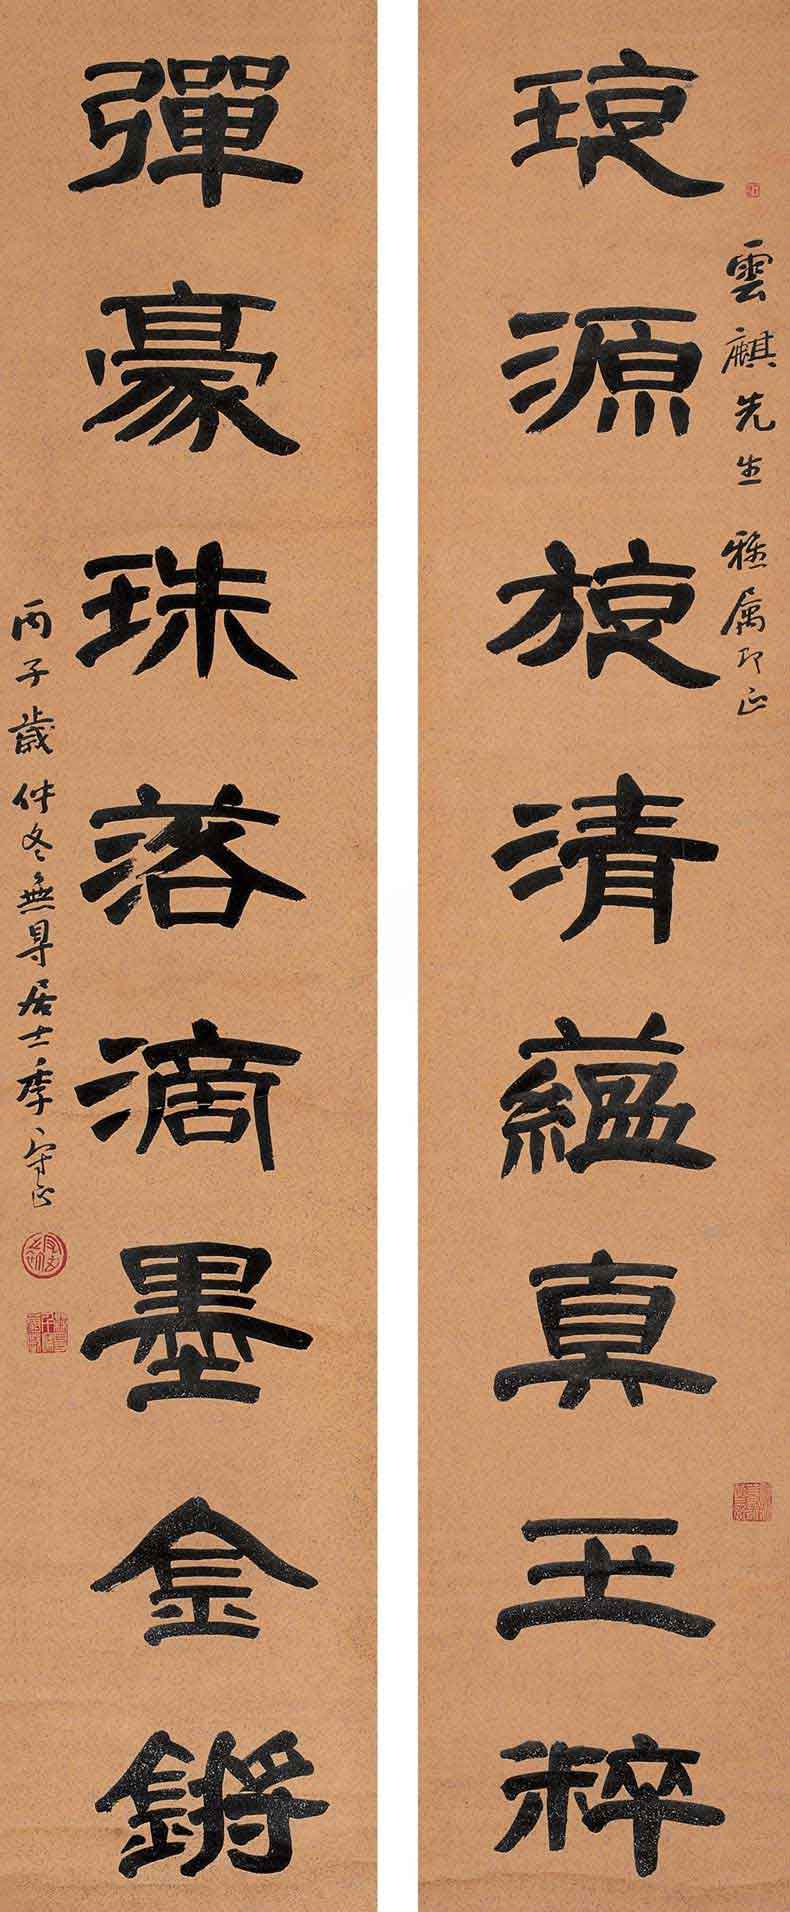 源清藴真玉粹
雲麒先生 雅属即正
彈豪珠落滴墨金鏘
丙子歲仲冬無㝵居士季守正